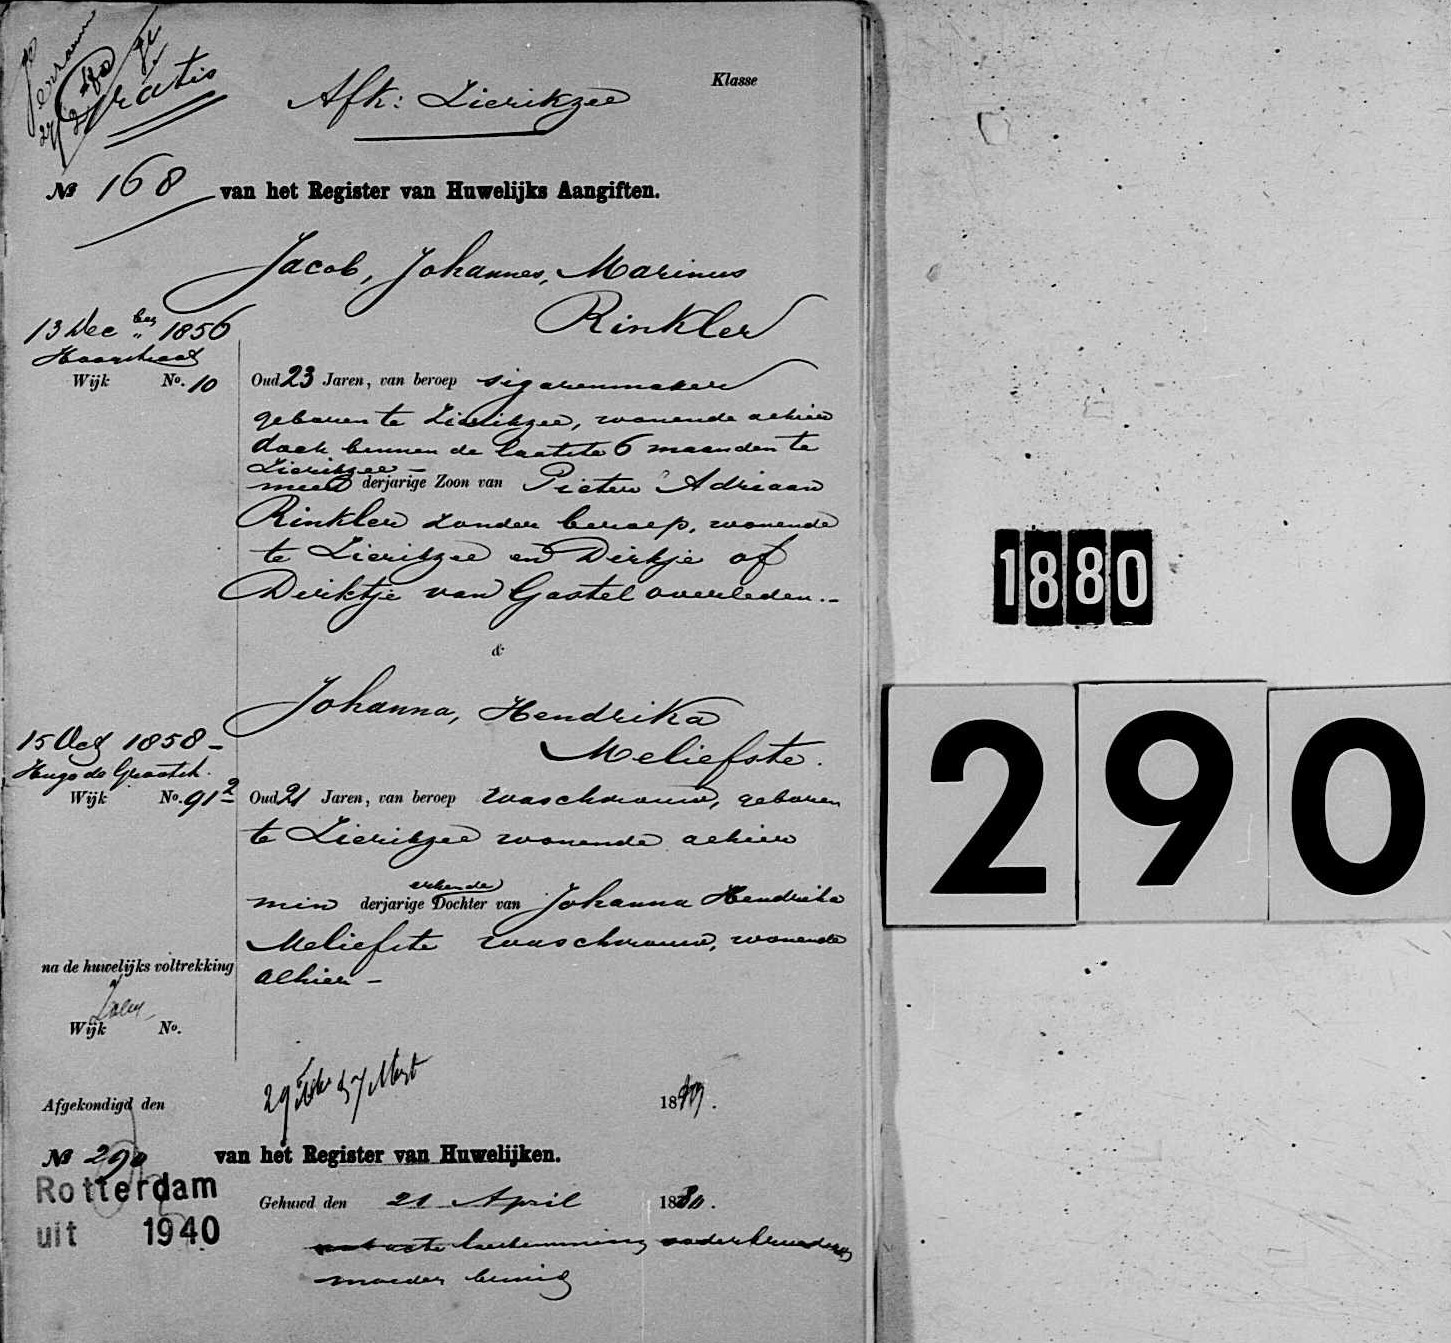 Gratis
Afk: Zierikzee
Klasse
№ 168 van het Register van Huwelijks Aangiften.
Jacob, Johannes, Marinus
Rinkler
13 Dec ber 1856
Wijk No. 10
Oud 23 Jaren, van beroep sigarenmaker
geboren te Zierikzee, wonende alhier
doch binnen de laatste 6 maanden te
Zierikzee -
meer derjarige Zoon van Pieter Adriaan
Rinkler zonder beroep, wonende
te Zierikzee en Dirkje of
Dirktje van Gastel overleden.-
&
Johanna, Hendrika
Meliefste.
15 Oct 1858 -
Hugo de Grootst.
Wijk No. 91 2
Oud 21 Jaren, van beroep waschvrouw, geboren
te Zierikzee wonende alhier
erkende
min derjarige Dochter van Johanna Hendrika
Meliefste waschvrouw, wonende
alhier -
na de huwelijks voltrekking
Wijk No.
Afgekondigd den 29 Feb & 7 Mart 1880.
№ 290 van het Register van Huwelijken.
Rotterdam
uit 1940
Gehuwd den 21 April 1880.
acte toestemming vader bruidegom
moeder bruid
1880
290